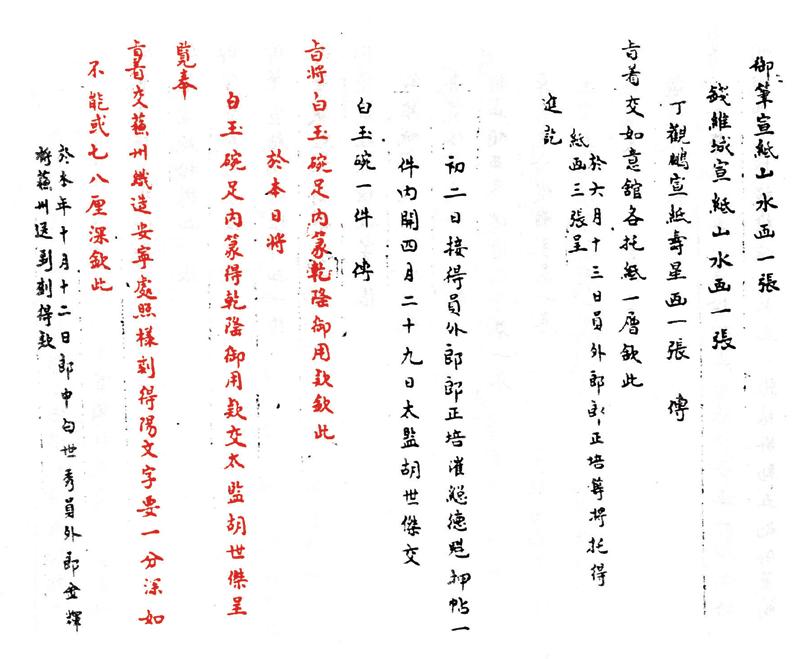 御筆宣紙山水画一張
錢維城宣紙山水画一張
丁觀鵬宣紙壽星画一張 傳
旨着交如意舘各托紙一層欽此
於六月十三日員外郎郎正培等将托得
紙画三張呈
進訖
初二日接得員外郎郎正培催總德魁押帖一
件内開四月二十九日太監胡世傑交
白玉碗一件 傳
旨將白玉碗足内篆乾隆御用款欽此
於本日将
白玉碗足内篆得乾隆御用款交太監胡世傑呈
覽奉
旨着交蘇州織造安寧處照樣刻得陽文字要一分深如
不能或七八厘深欽此
於本年十月十二日郎中白世秀員外郎金輝
将蘇州送到刻得款